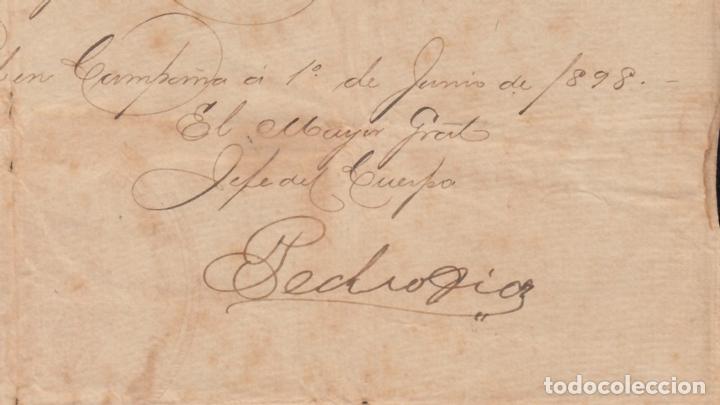 en Campaña á 1º de Junio de 1898.-
El Mayor Gral
Jefe del Cuerpo
Pedro Díaz
todocoleccion